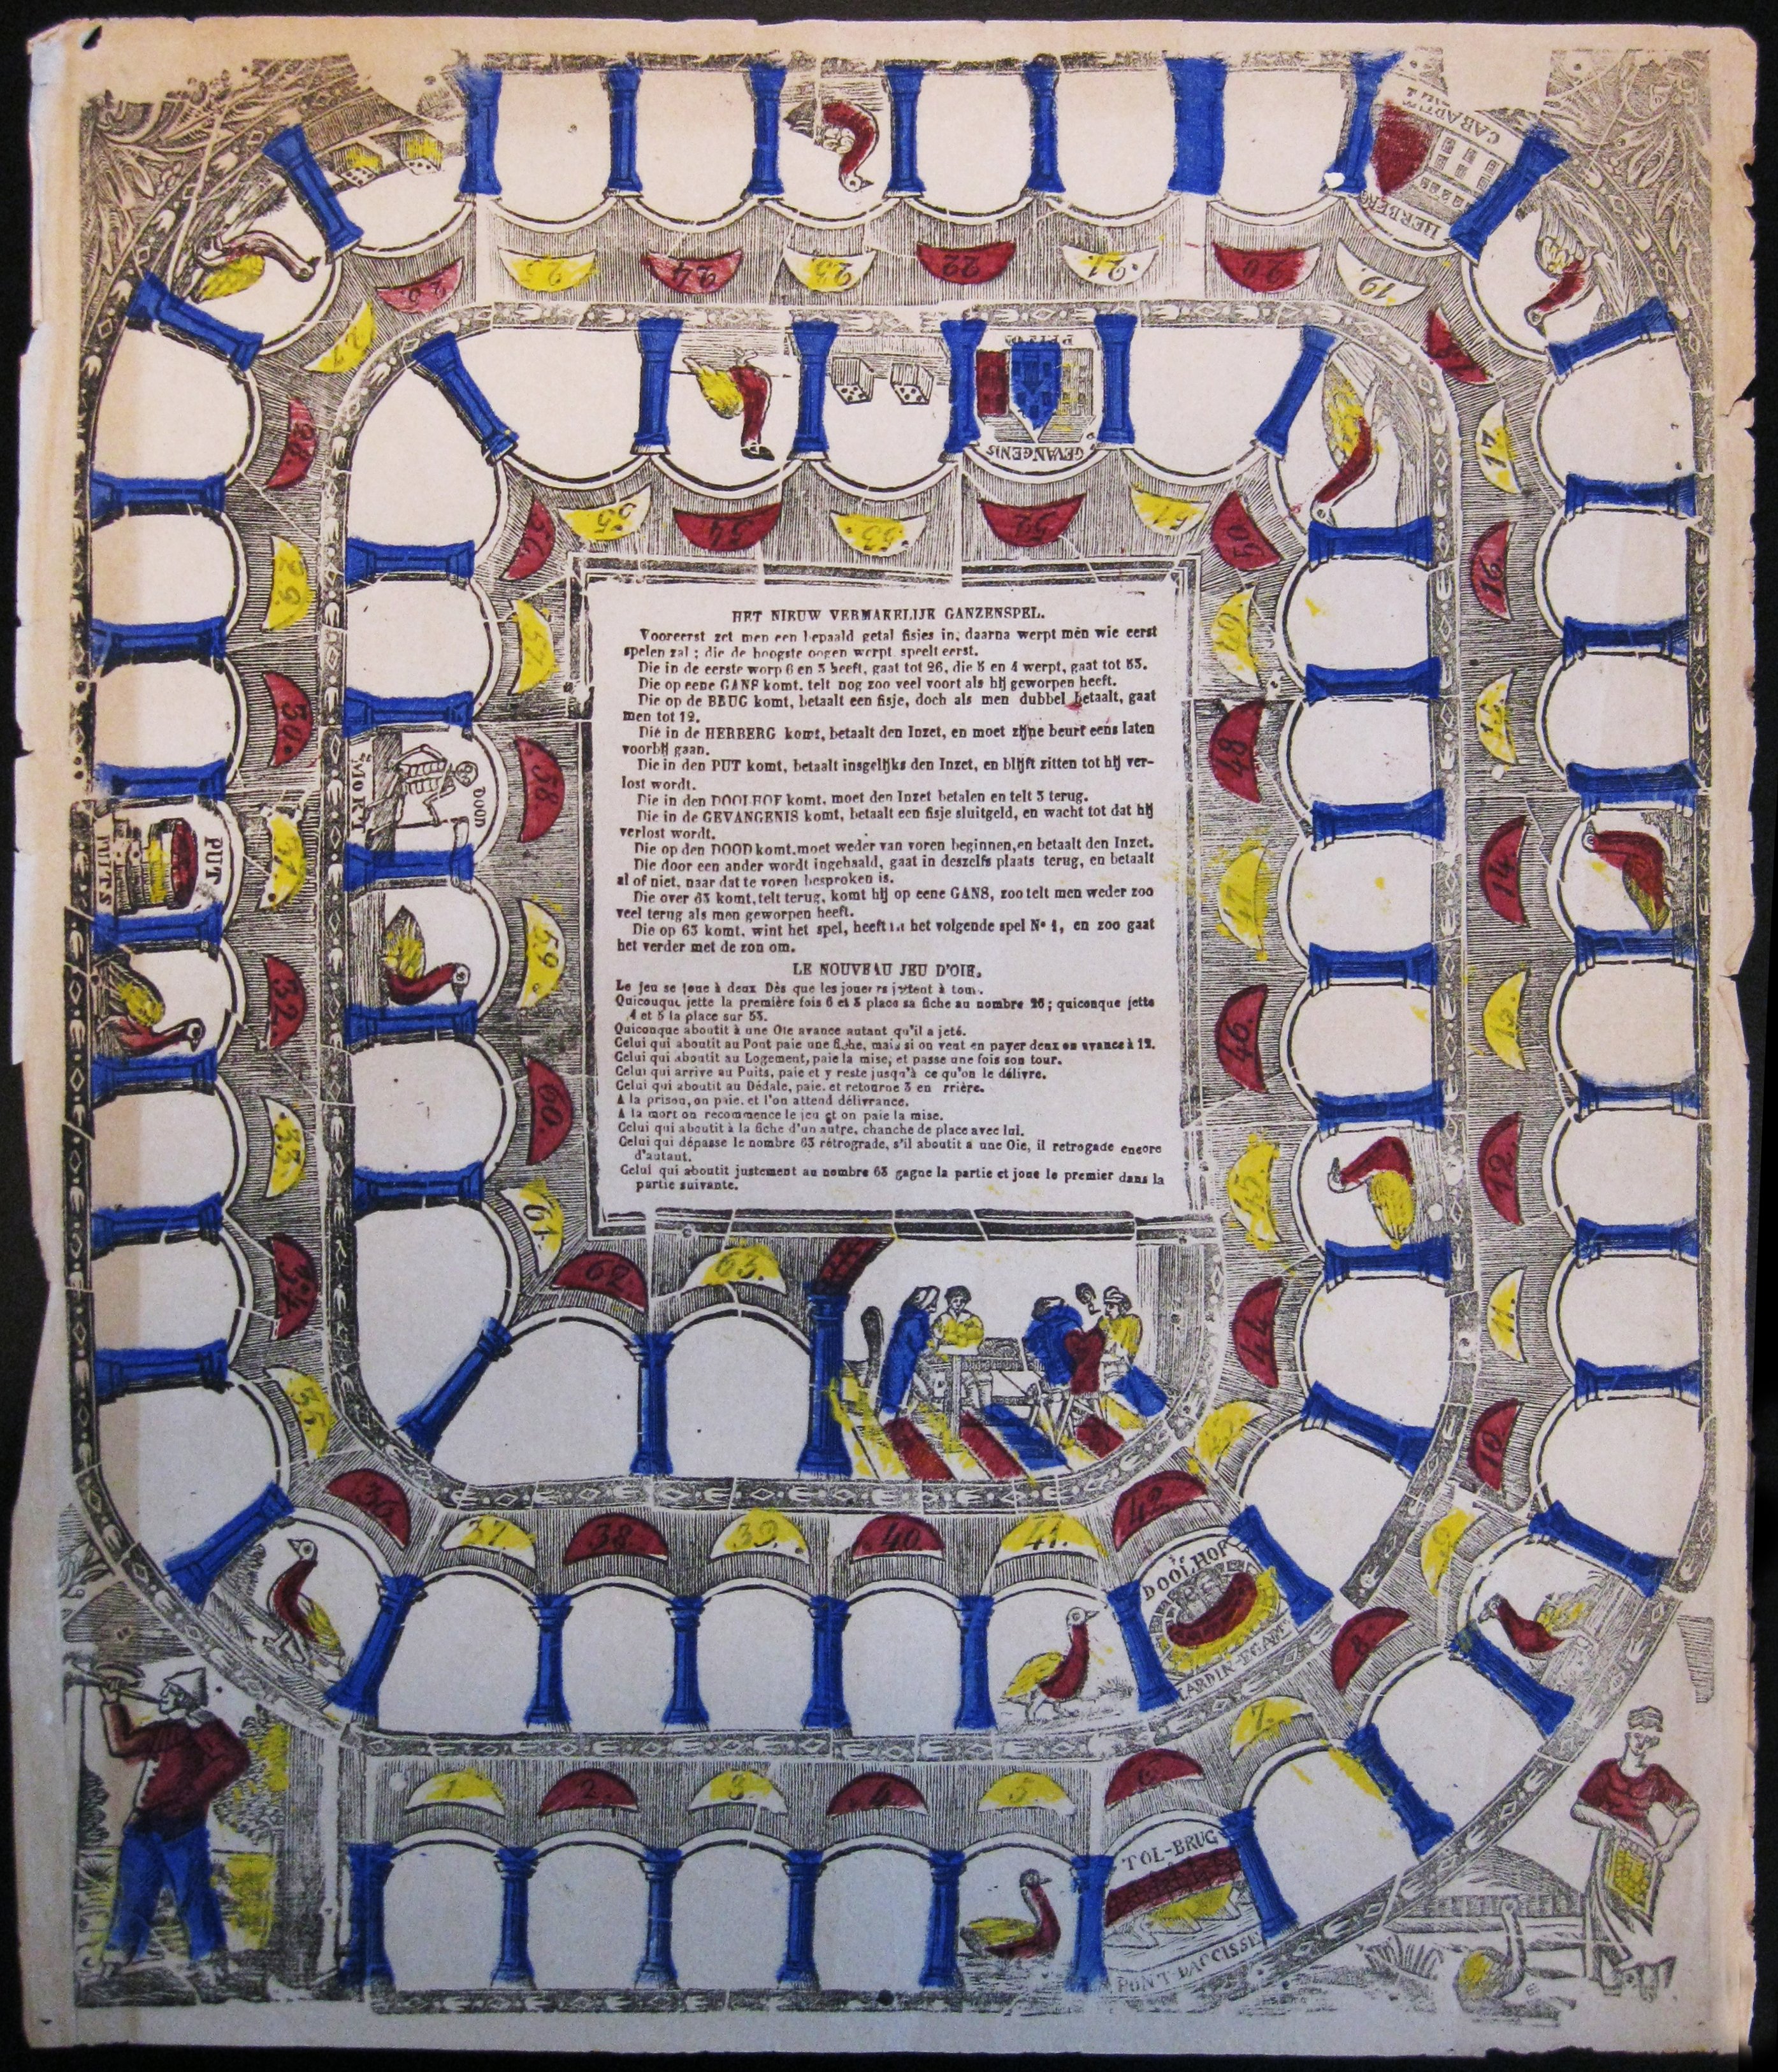 HET NIEUW VERMAKELIJK GANZENSPEL.
Vooreerst zet men een bepaald getal fisjes in, daarna werpt men wie eerst
spelen zal ; die de hoogste oogen werpt, speelt eerst.
Die in de eerste worp 6 en 3 heeft, gaat tot 26, die 5 en 4 werpt, gaat tot 53.
Die op eene GANS komt, telt nog zoo veel voort als hij geworpen heeft.
Die op de BRUG komt, betaalt een fisje, doch als men dubbel betaalt, gaat
men tot 12.
Die in de HERBERG komt, betaalt den Inzet, en moet zijne beurt eens laten
voorbij gaan.
Die in den PUT komt, betaalt insgelijks den Inzet, en blijft zitten tot hij ver-
lost wordt.
Die in den DOOLHOF komt, moet den Inzet betalen en telt 3 terug.
Die in de GEVANGENIS komt, betaalt een fisje sluitgeld, en wacht tot dat hij
verlost wordt.
Die op den DOOD komt, moet weder van voren beginnen, en betaalt den Inzet.
Die door een ander wordt ingehaald, gaat in deszelfs plaats terug, en betaalt
al of niet, naar dat te voren besproken is.
Die over 63 komt, telt terug, komt hij op eene GANS, zoo telt men weder zoo
veel terug als men geworpen heeft.
Die op 63 komt, wint het spel, heeft in het volgende spel No 1, en zoo gaat
het verder met de zon om.
LE NOUVEAU JEU D'OIE.
Le jeu se joue à deux Dés que les joueurs jettent à tour.
Quiconque jette la première fois 6 et 3 place sa fiche au nombre 26; quiconque jette
4 et 5 la place sur 53.
Quiconque aboutit à une Oie avance autant qu'il a jeté.
Celui qui aboutit au Pont paie une fiche, mais si on veut en payer deux on avance à 12.
Celui qui aboutit au Logement, paie la mise, et passe une fois son tour.
Celui qui arrive au Puits, paie et y reste jusqu'à ce qu'on le délivre.
Celui qui aboutit au Dédale, paie, et retourne 3 en rrière.
A la prison, on paie, et l'on attend délivrance.
A la mort on recommence le jeu et on paie la mise.
Celui qui aboutit à la fiche d'un autre, chanche de place avec lui.
Celui qui dépasse le nombre 63 rétrograde, s'il aboutit a une Oie, il retrogade encore
d'autant.
Celui qui aboutit justement au nombre 63 gagne la partie et joue le premier dans la
partie suivante.
1
2.
3
4
5
6
TOL-BRUG
PONT D'ACCISSE
7.
8
9
10
11.
12
13
14
15
16.
17
18
19
HERBERG
CABARET
20
21.
22
23.
24
25
26
27
28
29.
30.
31.
PUT
PUITS
32.
33
34
35
36
37
38
39.
40.
41.
42
DOOLHOF
43
44
45
46.
47
48
49
50
51
52
GEVANGENIS
53
54
55
56
57
58
DOOD
MORT
59
60.
61.
62
63.